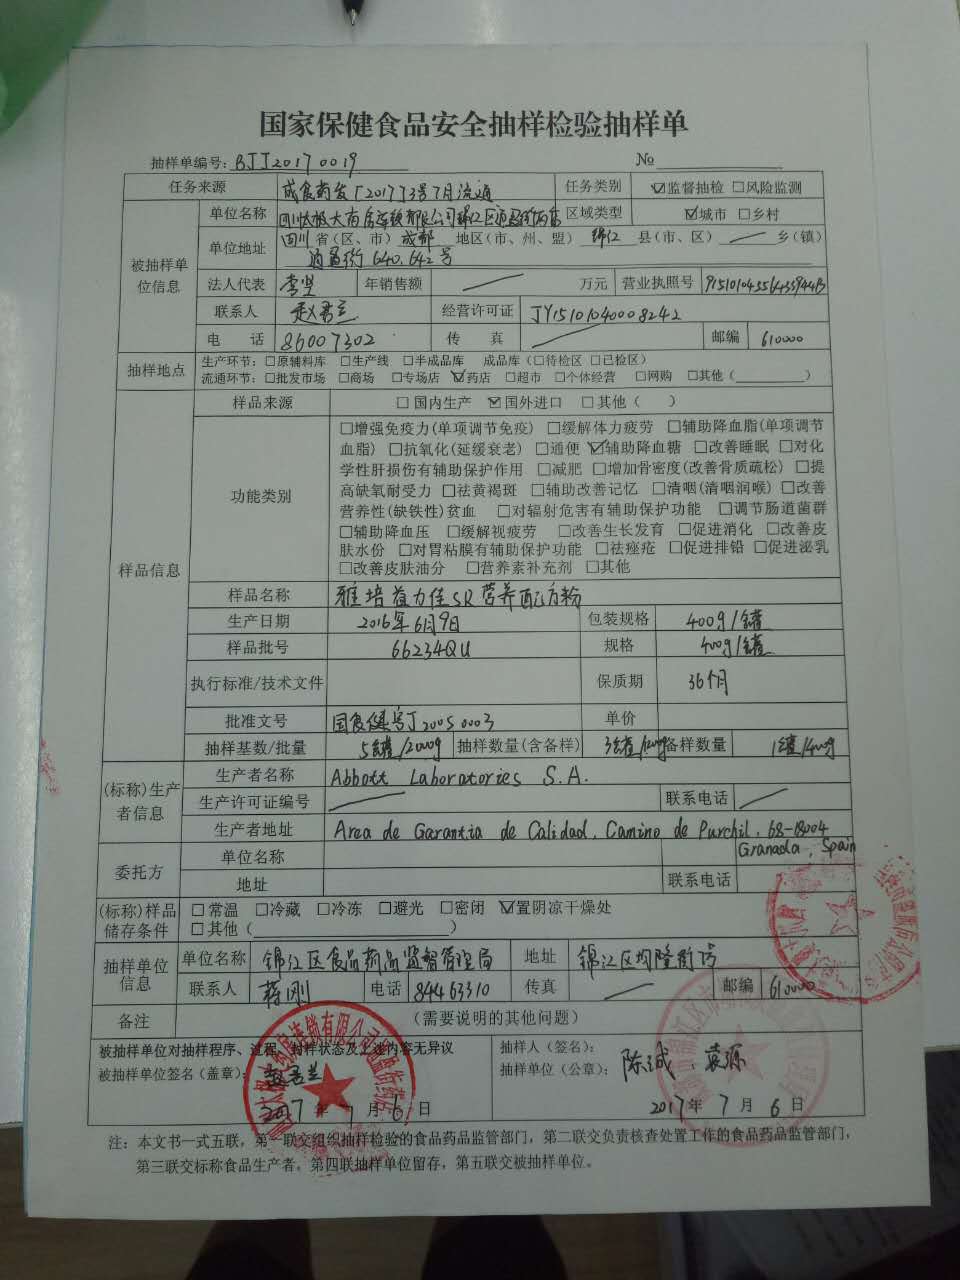 国家保健食品安全抽样检验抽样单
抽样单编号: BJJ20170019 №
任务来源 成食药发〔2017〕3号7月流通 任务类别 ☑监督抽检 □风险监测
被抽样单位信息 单位名称 四川太极大药房连锁有限公司锦江区通盈街药店 区域类型 ☑城市 □乡村
单位地址 四川省(区、市) 成都 地区(市、州、盟) 锦江 县(市、区) 乡(镇)
通盈街640.642号
法人代表 李坚 年销售额 万元 营业执照号
联系人 赵君兰 经营许可证 JY15101040008242
电 话 86007302 传 真 邮编 610000
抽样地点 生产环节:□原辅料库 □生产线 □半成品库 成品库(□待检区 □已检区)
流通环节:□批发市场 □商场 □专场店 ☑药店 □超市 □个体经营 □网购 □其他( )
样品信息 样品来源 □国内生产 ☑国外进口 □其他( )
功能类别 □增强免疫力(单项调节免疫) □缓解体力疲劳 □辅助降血脂(单项调节
血脂) □抗氧化(延缓衰老) □通便 ☑辅助降血糖 □改善睡眠 □对化
学性肝损伤有辅助保护作用 □减肥 □增加骨密度(改善骨质疏松) □提
高缺氧耐受力 □祛黄褐斑 □辅助改善记忆 □清咽(清咽润喉) □改善
营养性(缺铁性)贫血 □对辐射危害有辅助保护功能 □调节肠道菌群
□辅助降血压 □缓解视疲劳 □改善生长发育 □促进消化 □改善皮
肤水份 □对胃粘膜有辅助保护功能 □祛痤疮 □促进排铅 □促进泌乳
□改善皮肤油分 □营养素补充剂 □其他
样品名称 雅培益力佳SR营养配方粉
生产日期 2016年6月9日 包装规格 400g/罐
样品批号 66234QU 规格 400g/罐
执行标准/技术文件 保质期 36个月
批准文号 国食健字J20050003 单价
抽样基数/批量 5罐/2000g 抽样数量(含备样) 3罐/1200g 备样数量 1罐/400g
(标称)生产者信息 生产者名称 Abbott Laboratories S.A.
生产许可证编号 联系电话
生产者地址 Area de Garantia de Calidad, Camino de Purchil, 68-18004
Granada, Spain
委托方 单位名称
地址 联系电话
(标称)样品储存条件 □常温 □冷藏 □冷冻 □避光 □密闭 ☑置阴凉干燥处
□其他( )
抽样单位信息 单位名称 锦江区食品药品监督管理局 地址 锦江区均隆街
联系人 蒋刚 电话 84463310 传真 邮编 610000
备注 (需要说明的其他问题)
被抽样单位对抽样程序、过程、封样状态及上述内容无异议
被抽样单位签名(盖章): 赵君兰
2017年7月6日
抽样人(签名):
抽样单位(公章): 陈诚、袁源
2017年7月6日
注:本文书一式五联,第一联交组织抽样检验的食品药品监管部门,第二联交负责核查处置工作的食品药品监管部门,
第三联交标称食品生产者,第四联抽样单位留存,第五联交被抽样单位。